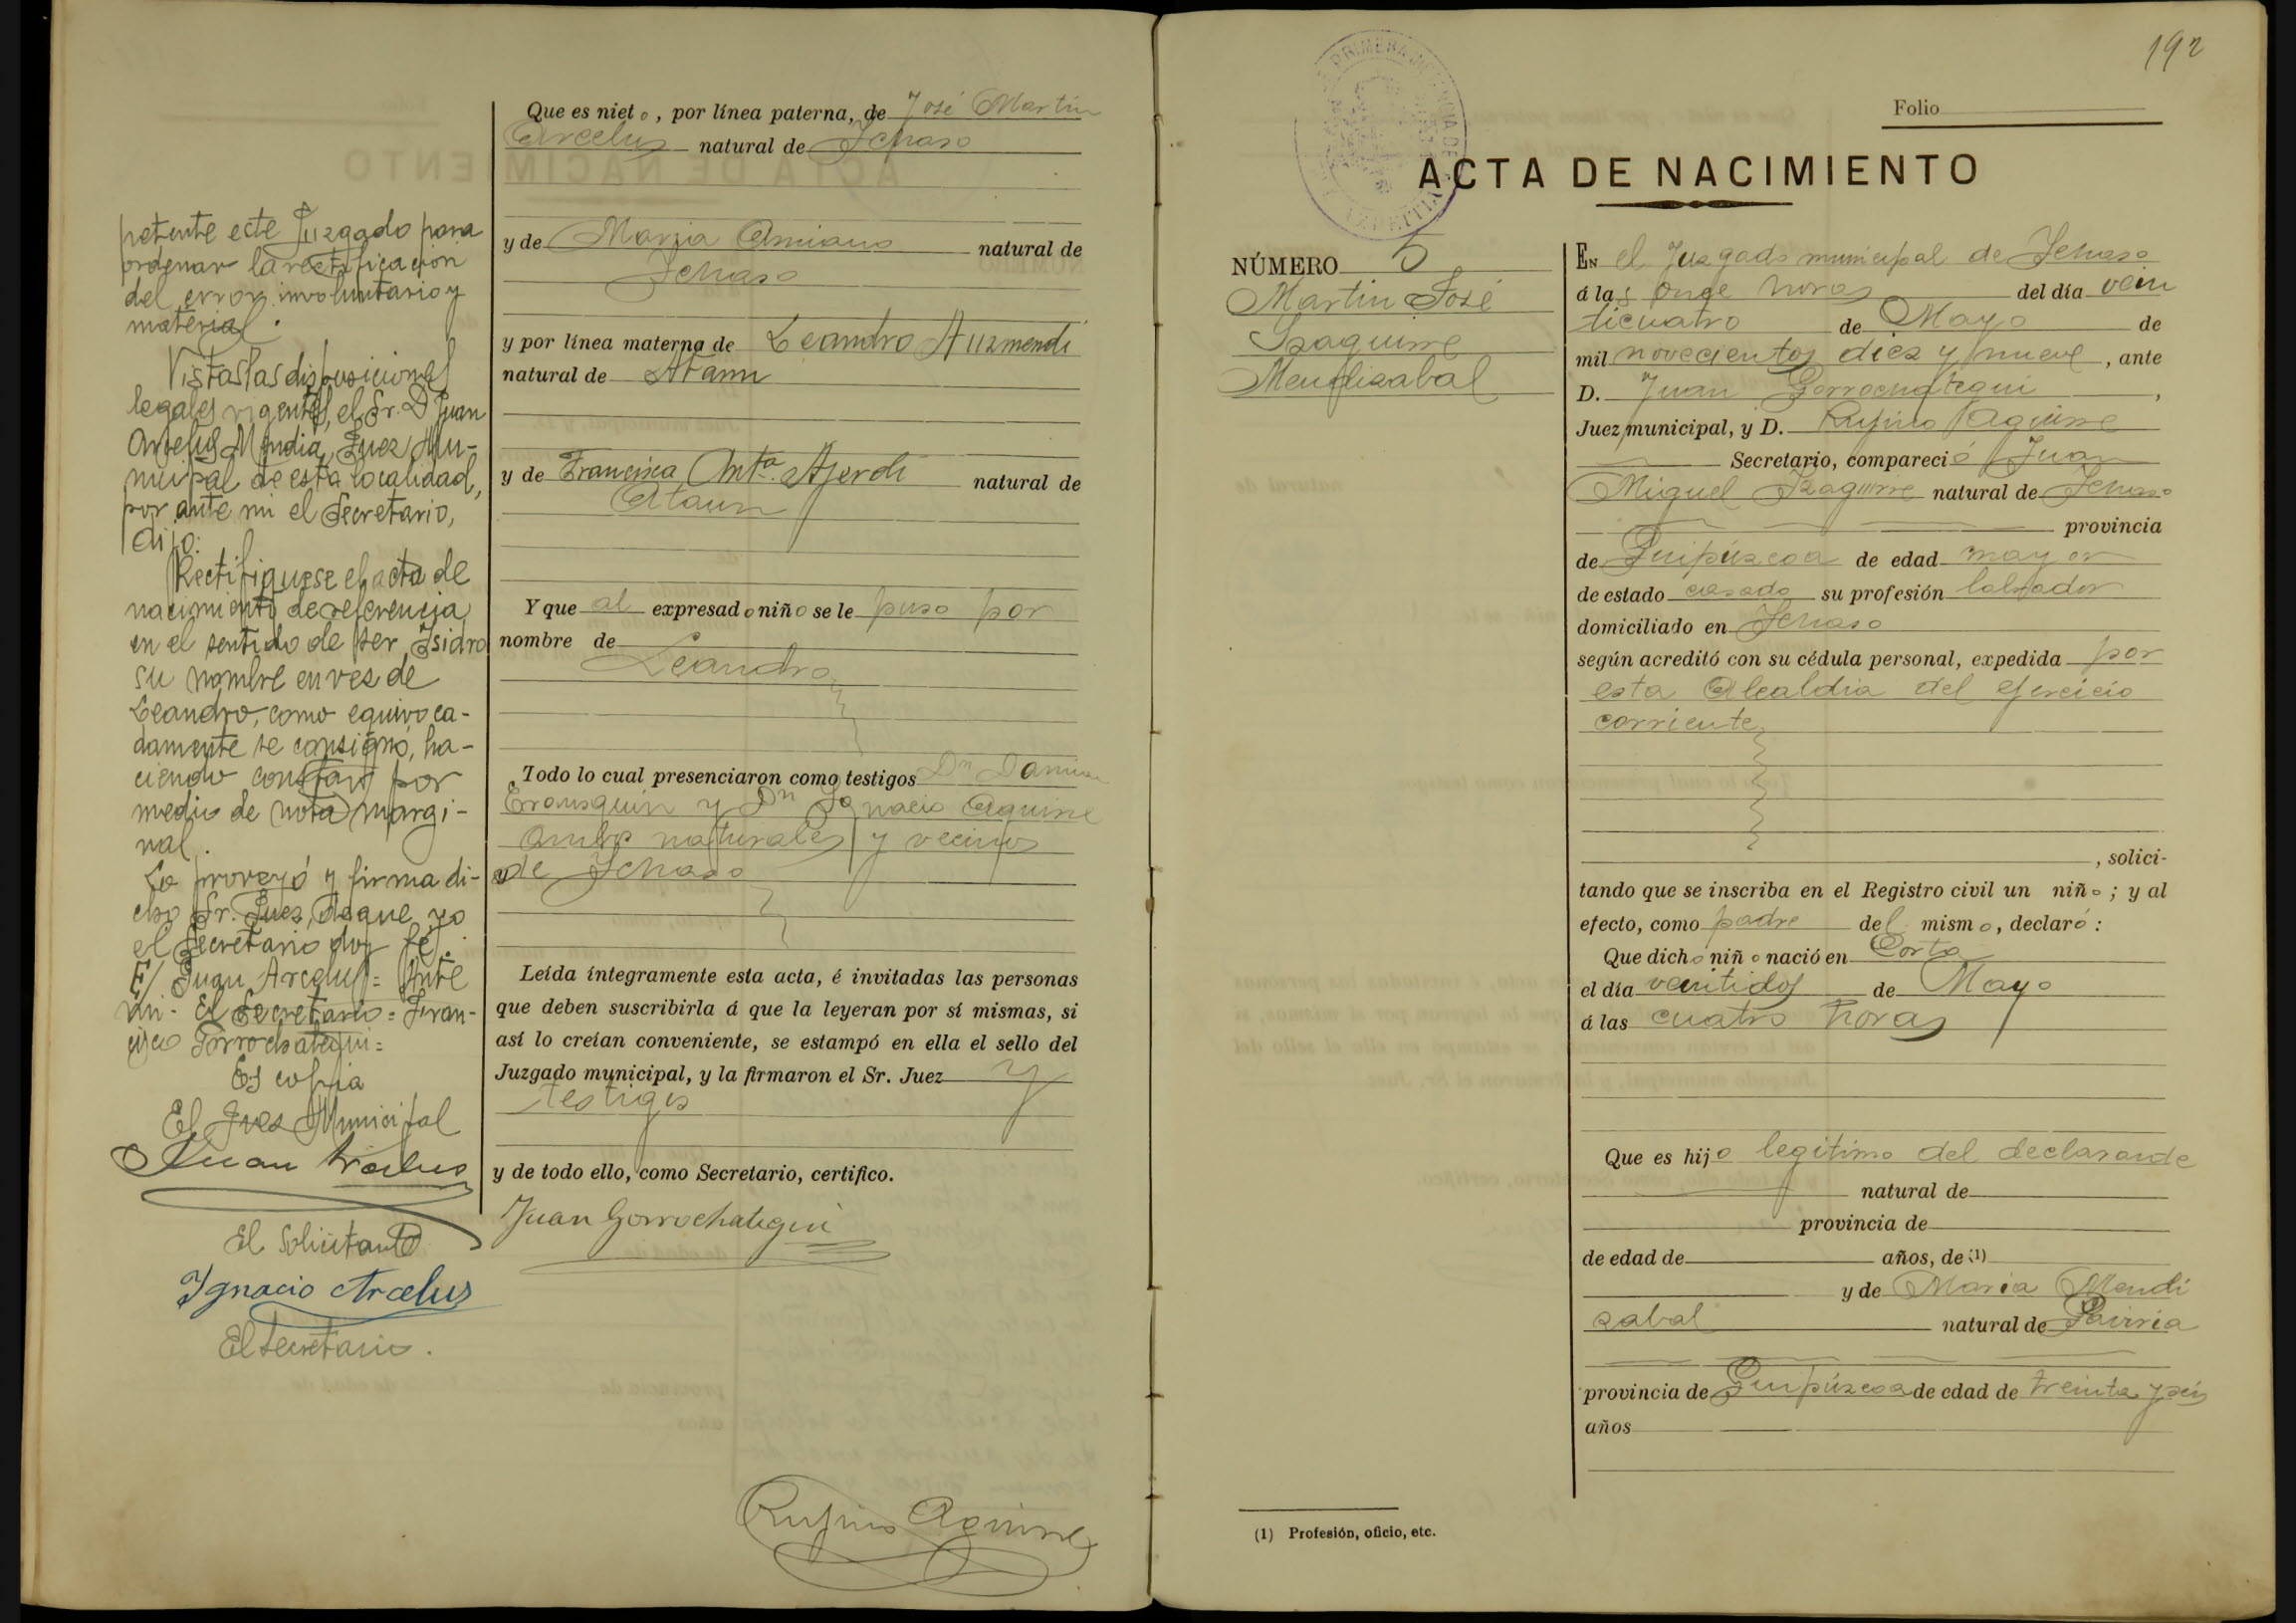 petente este Juzgado para
ordenar la rectificación
del error involuntario y
material.
Vistas las disposiciones
legales vigentes, el Sr. D Juan
Arcelus Mendia, Juez Mu-
nicipal de esta localidad,
por ante mi el Secretario,
dijo:
Rectifiquese el acta de
nacimiento de referencia
en el sentido de ser Isidro
su nombre en vez de
Leandro, como equivoca-
damente se consignó, ha-
ciendo constar por
medio de nota margi-
nal.
Lo proveyó y firma di-
cho Sr. Juez, de que yo
el Secretario doy fé.
E/ Juan Arcelus = Ante
mi - El Secretario = Fran-
cisco Gorrochategui =
Es copia
El Juez Municipal
Juan Arcelus
El Solicitante
Ignacio Arcelus
El Secretario.
Que es nieto, por línea paterna, de José Martin
Arcelus natural de Ichaso
y de Maria Amiano natural de
Ichaso
y por línea materna de Leandro Auzmendi
natural de Ataun
y de Francisca Anta. natural de
Ataun
Y que al expresado niño se le puso por
nombre de
Leandro
Todo lo cual presenciaron como testigos Dn Damian
Errausquin y Dn Ignacio Aguirre
ambos naturales y vecinos
de Ichaso
Leída íntegramente esta acta, é invitadas las personas
que deben suscribirla á que la leyeran por sí mismas, si
así lo creían conveniente, se estampó en ella el sello del
Juzgado municipal, y la firmaron el Sr. Juez y
testigos
y de todo ello, como Secretario, certifico.
Juan Gorrochategui
Rufino Aguirre
192
Folio
ACTA DE NACIMIENTO
NÚMERO 5
Martin José
Izaguirre
Mendizabal
EN el Juzgado municipal de Ichaso
á las once horas del día vein
ticuatro de Mayo de
mil novecientos diez y nueve, ante
D. Juan Gorrochategui,
Juez municipal, y D. Rufino Aguirre
Secretario, compareció Juan
Miguel Izaguirre natural de Ichaso
provincia
de Guipúzcoa de edad mayor
de estado casado su profesión labrador
domiciliado en Ichaso
según acreditó con su cédula personal, expedida por
esta Alcaldia del ejercicio
corriente
, solici-
tando que se inscriba en el Registro civil un niño; y al
efecto, como padre del mismo, declaró:
Que dicho niño nació en Corta
el día veintidos de Mayo
á las cuatro horas
Que es hijo legitimo del declarande
natural de
provincia de
de edad de años, de (1)
y de Maria Mendi
zabal natural de Gaviria
provincia de Guipúzcoa de edad de treinta y seis
años
(1) Profesión, oficio, etc.